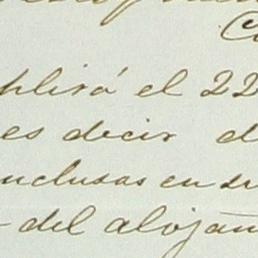 plirá el 22
es decir
nclusas en su
del aloja